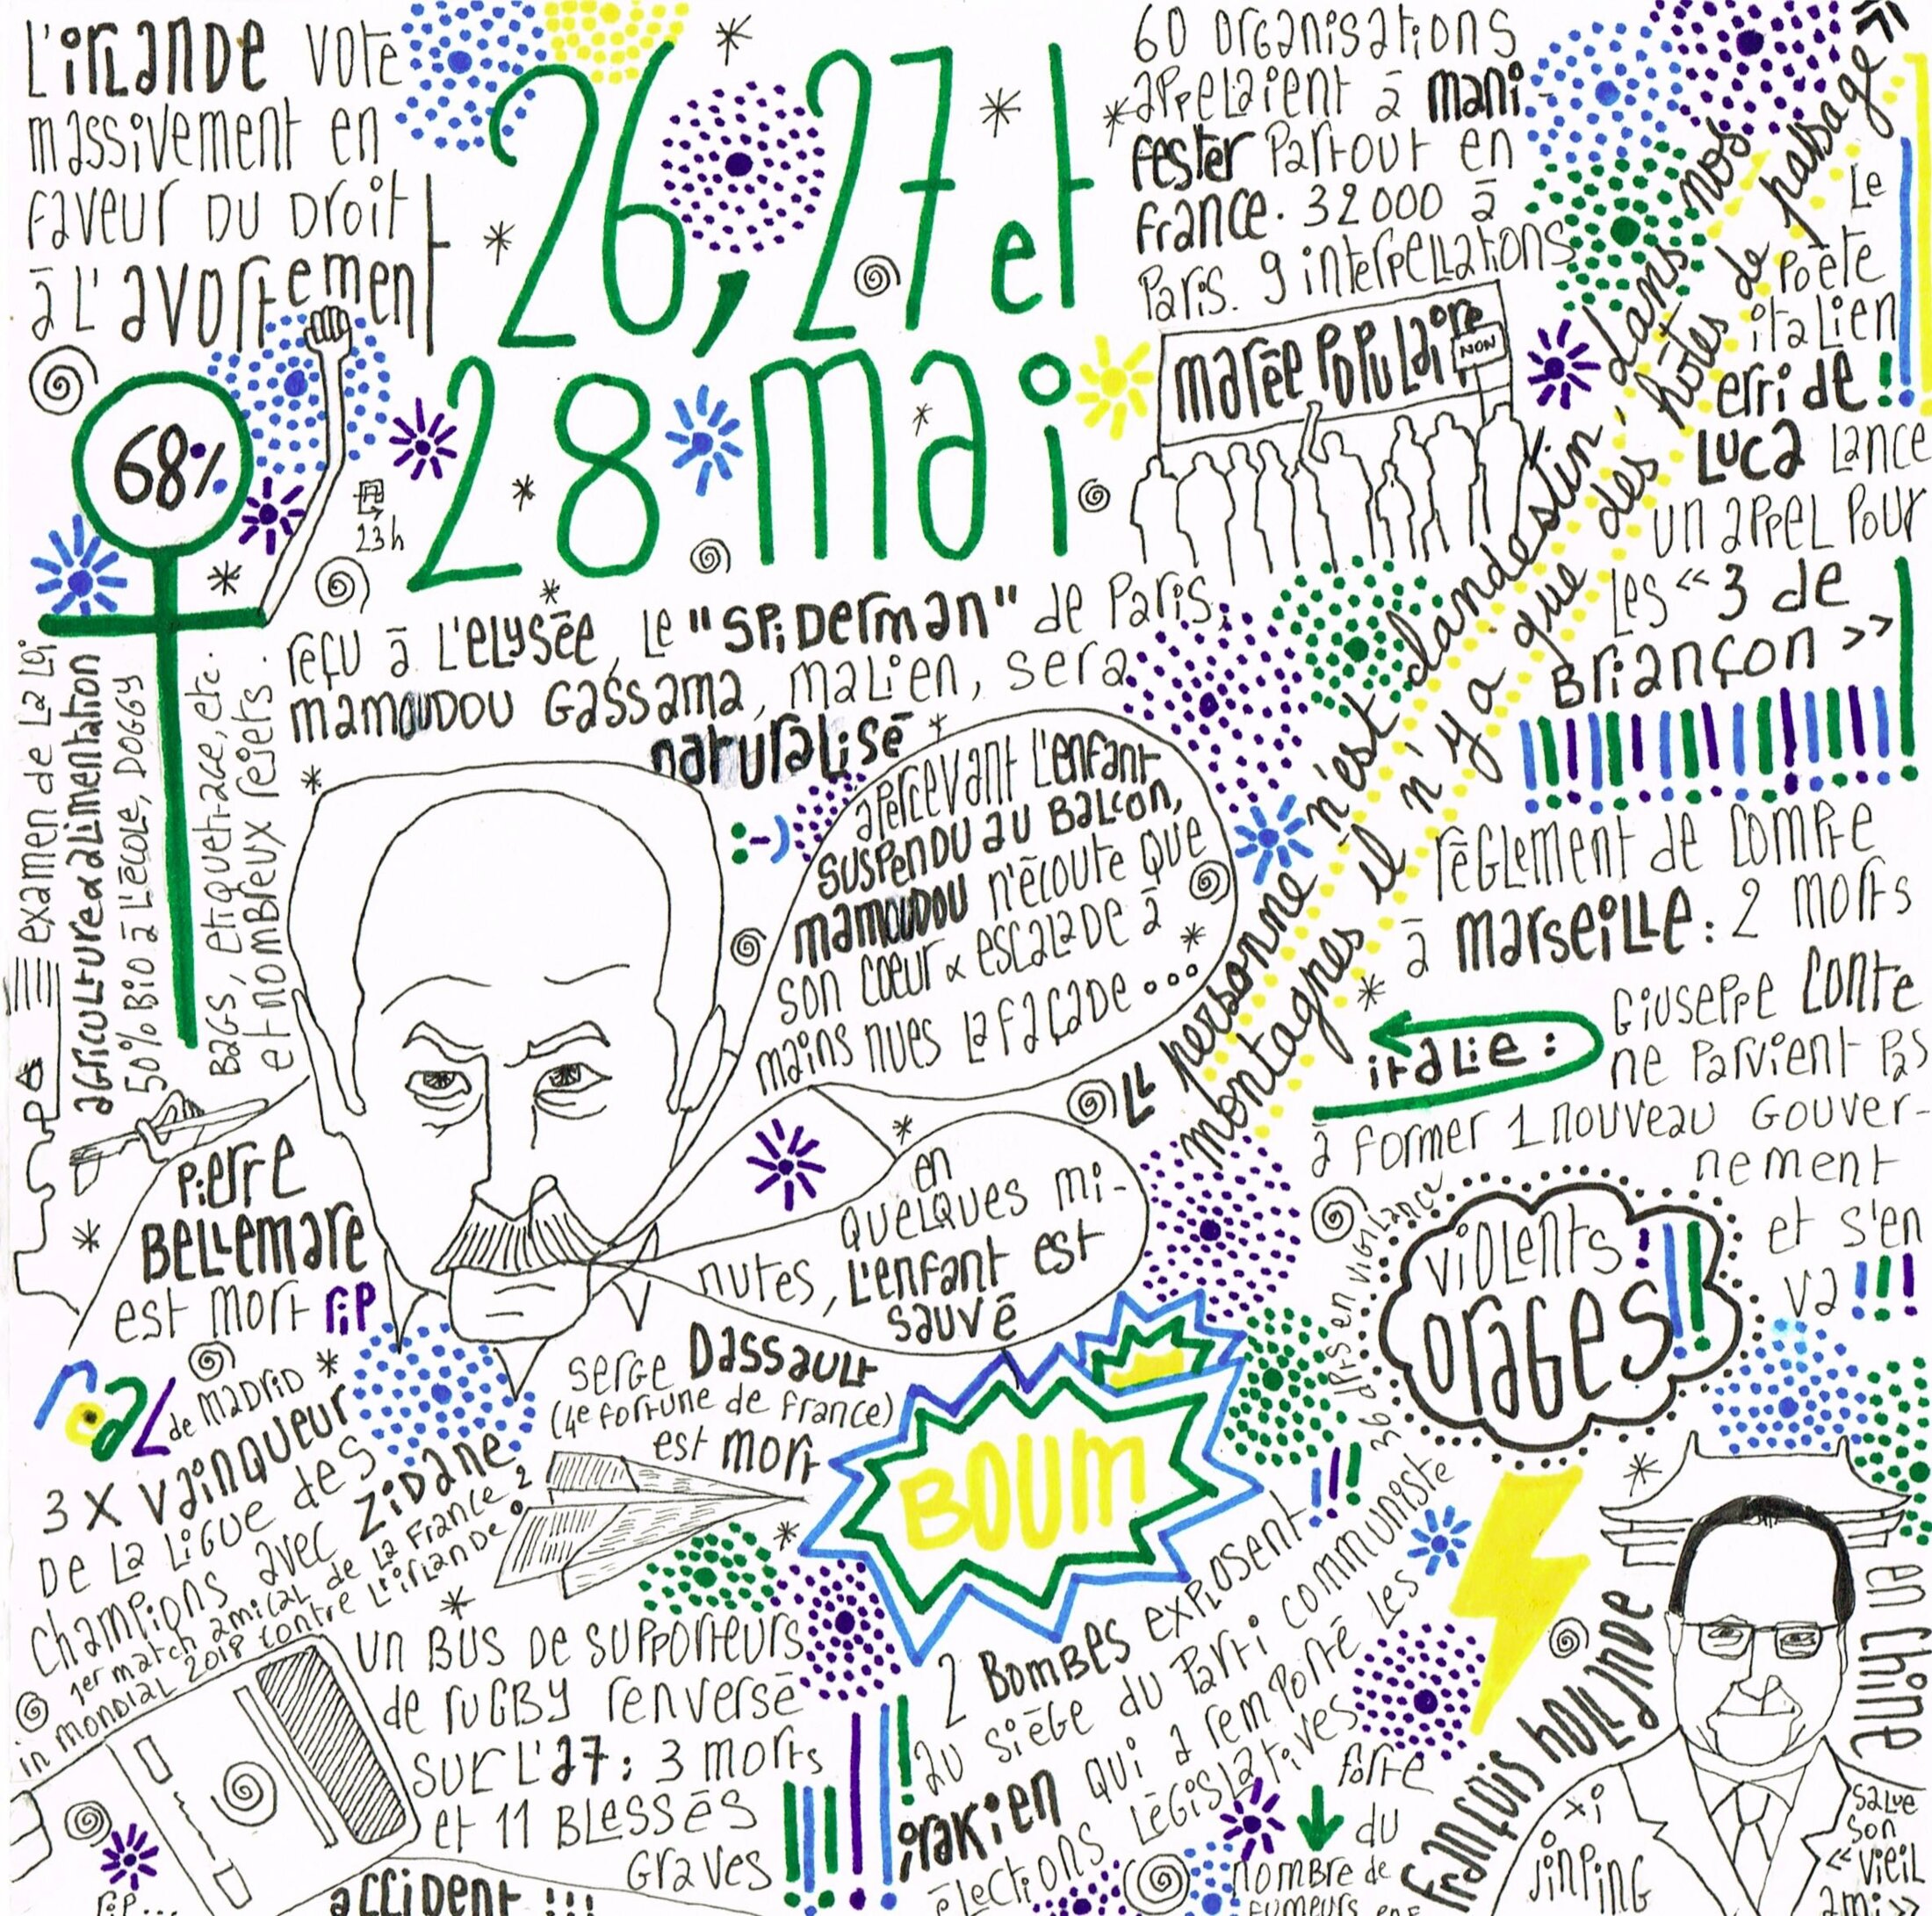 L'irlande vote
massivement en
faveur du droit
à l'avortement
68%
23h
26, 27 et
28 mai
60 organisations
appelaient à mani-
fester partout en
france. 32000 à
Paris. 9 interpellations
marée populaire
NON
Le
Poète
italien
erri de
Luca lance
un appel pour
les « 3 de
Briançon »
!!!!!!!!!!!!!!!!
« personne n'est clandestin, dans nos
montagnes il n'y a que des hôtes de passage »
reçu à l'elysée, le "spiderman" de Paris,
mamoudou Gassama, malien, sera
naturalisé
:-)
apercevant l'enfant
suspendu au balcon,
mamoudou n'écoute que
son coeur & escalade à
mains nues la façade...
en
quelques mi-
nutes, l'enfant est
sauvé
examen de la loi
agriculture & alimentation
50% bio à l'école, doggy
bags, etiquetage, etc.
et nombreux rejets.
Pierre
Bellemare
est mort rip
règlement de compte
à marseille: 2 morts
italie:
Giuseppe Conte
ne parvient pas
à former 1 nouveau gouver-
nement
et s'en
va !!!
violents
orages!!!
36 dpts en vigilance
real
de Madrid
3 X vainqueur
de la ligue des
champions avec Zidane
1er match amical de la France ?
in mondial 2018 contre l'irlande.
serge Dassault
(4e fortune de france)
est mort
BOUM
2 bombes explosent !!!
au siège du Parti communiste
irakien qui a remporté les
élections législatives
un bus de supporteurs
de rugby renversé
sur l'a7: 3 morts
et 11 blessés
graves
rip...
accident !!!
forte
du
nombre de
fumeurs en F
François hollande
en Chine
xi
jinping
salue
son
« vieil
ami »